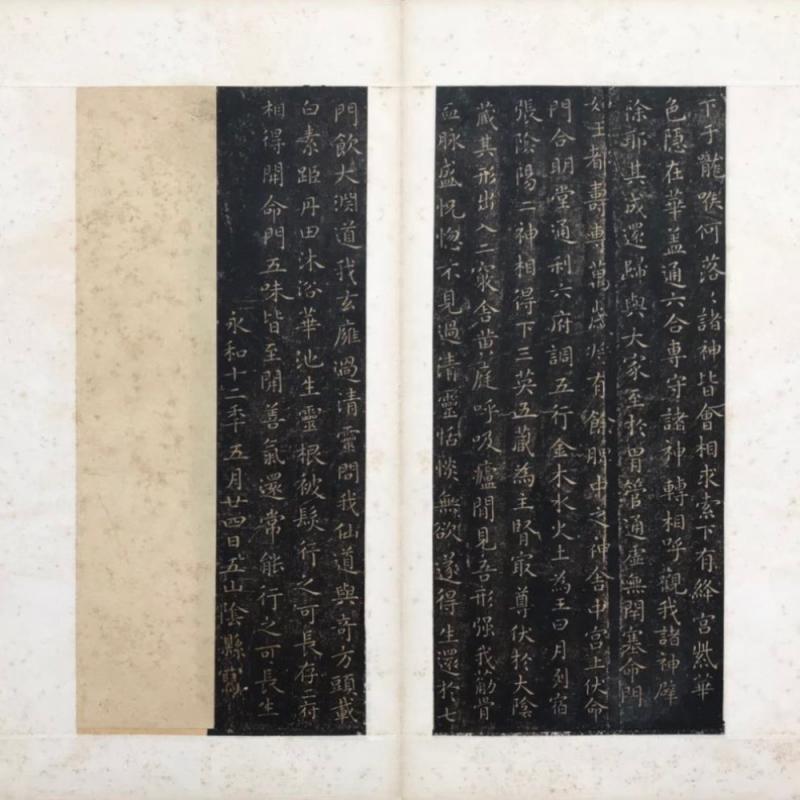 下于嚨喉何落〻諸神皆會相求索下有絳宮紫華
色隱在華蓋通六合專守諸神轉相呼觀我諸神辟
除耶其成還歸與大家至於胃管通虛無閉塞命門
如玉都壽專萬歲將有餘脾中之神舍中宮上伏命
門合明堂通利六府調五行金木水火土為王日月列宿
張陰陽二神相得下玉英五藏為主腎最尊伏於大陰
藏其形出入二竅舍黃庭呼吸廬間見吾形强我筋骨
血脉盛恍惚不見過清靈恬惔無欲遂得生還於七
門飲大淵道我玄雍過清靈問我仙道與奇方頭載
白素距丹田沐浴華池生靈根被髮行之可長存二府
相得開命門五味皆至開善氣還常能行之可長生
永和十二年五月廿四日五山陰縣寫